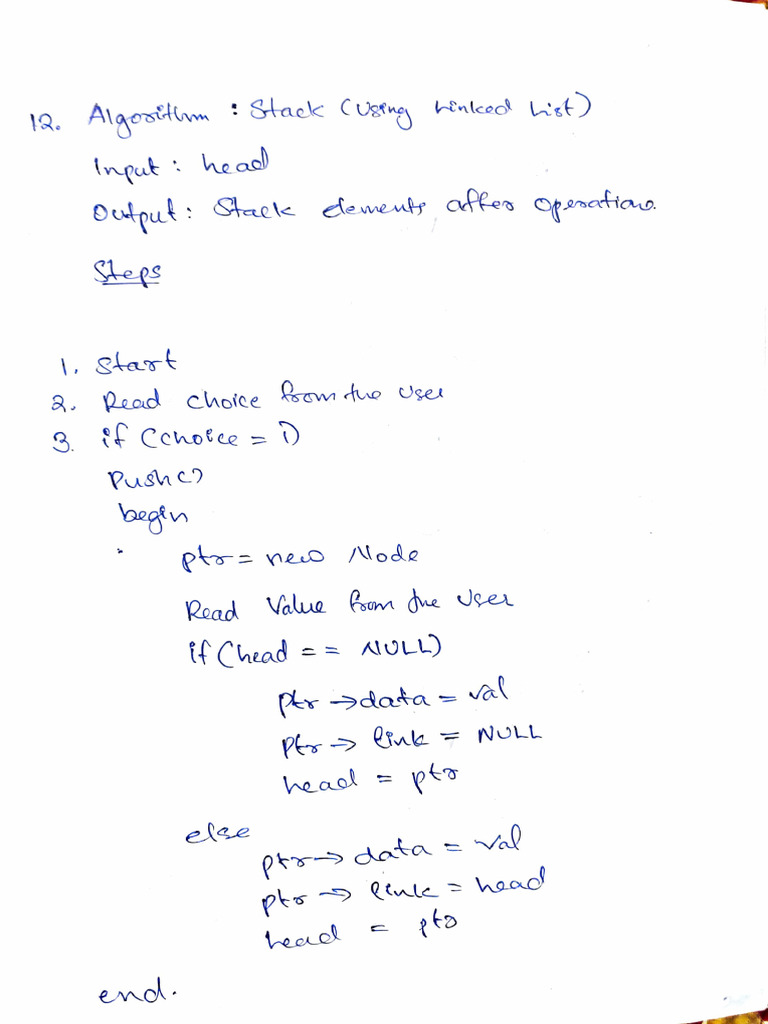 12. Algorithm : Stack (Using Linked List)
Input : head
Output : Stack elements after operations.
Steps
1. Start
2. Read choice from the user
3. if (choice = 1)
Push()
begin
ptr = new Node
Read Value from the user
if (head == NULL)
ptr → data = val
ptr → link = NULL
head = ptr
else
ptr → data = val
ptr → link = head
head = ptr
end.